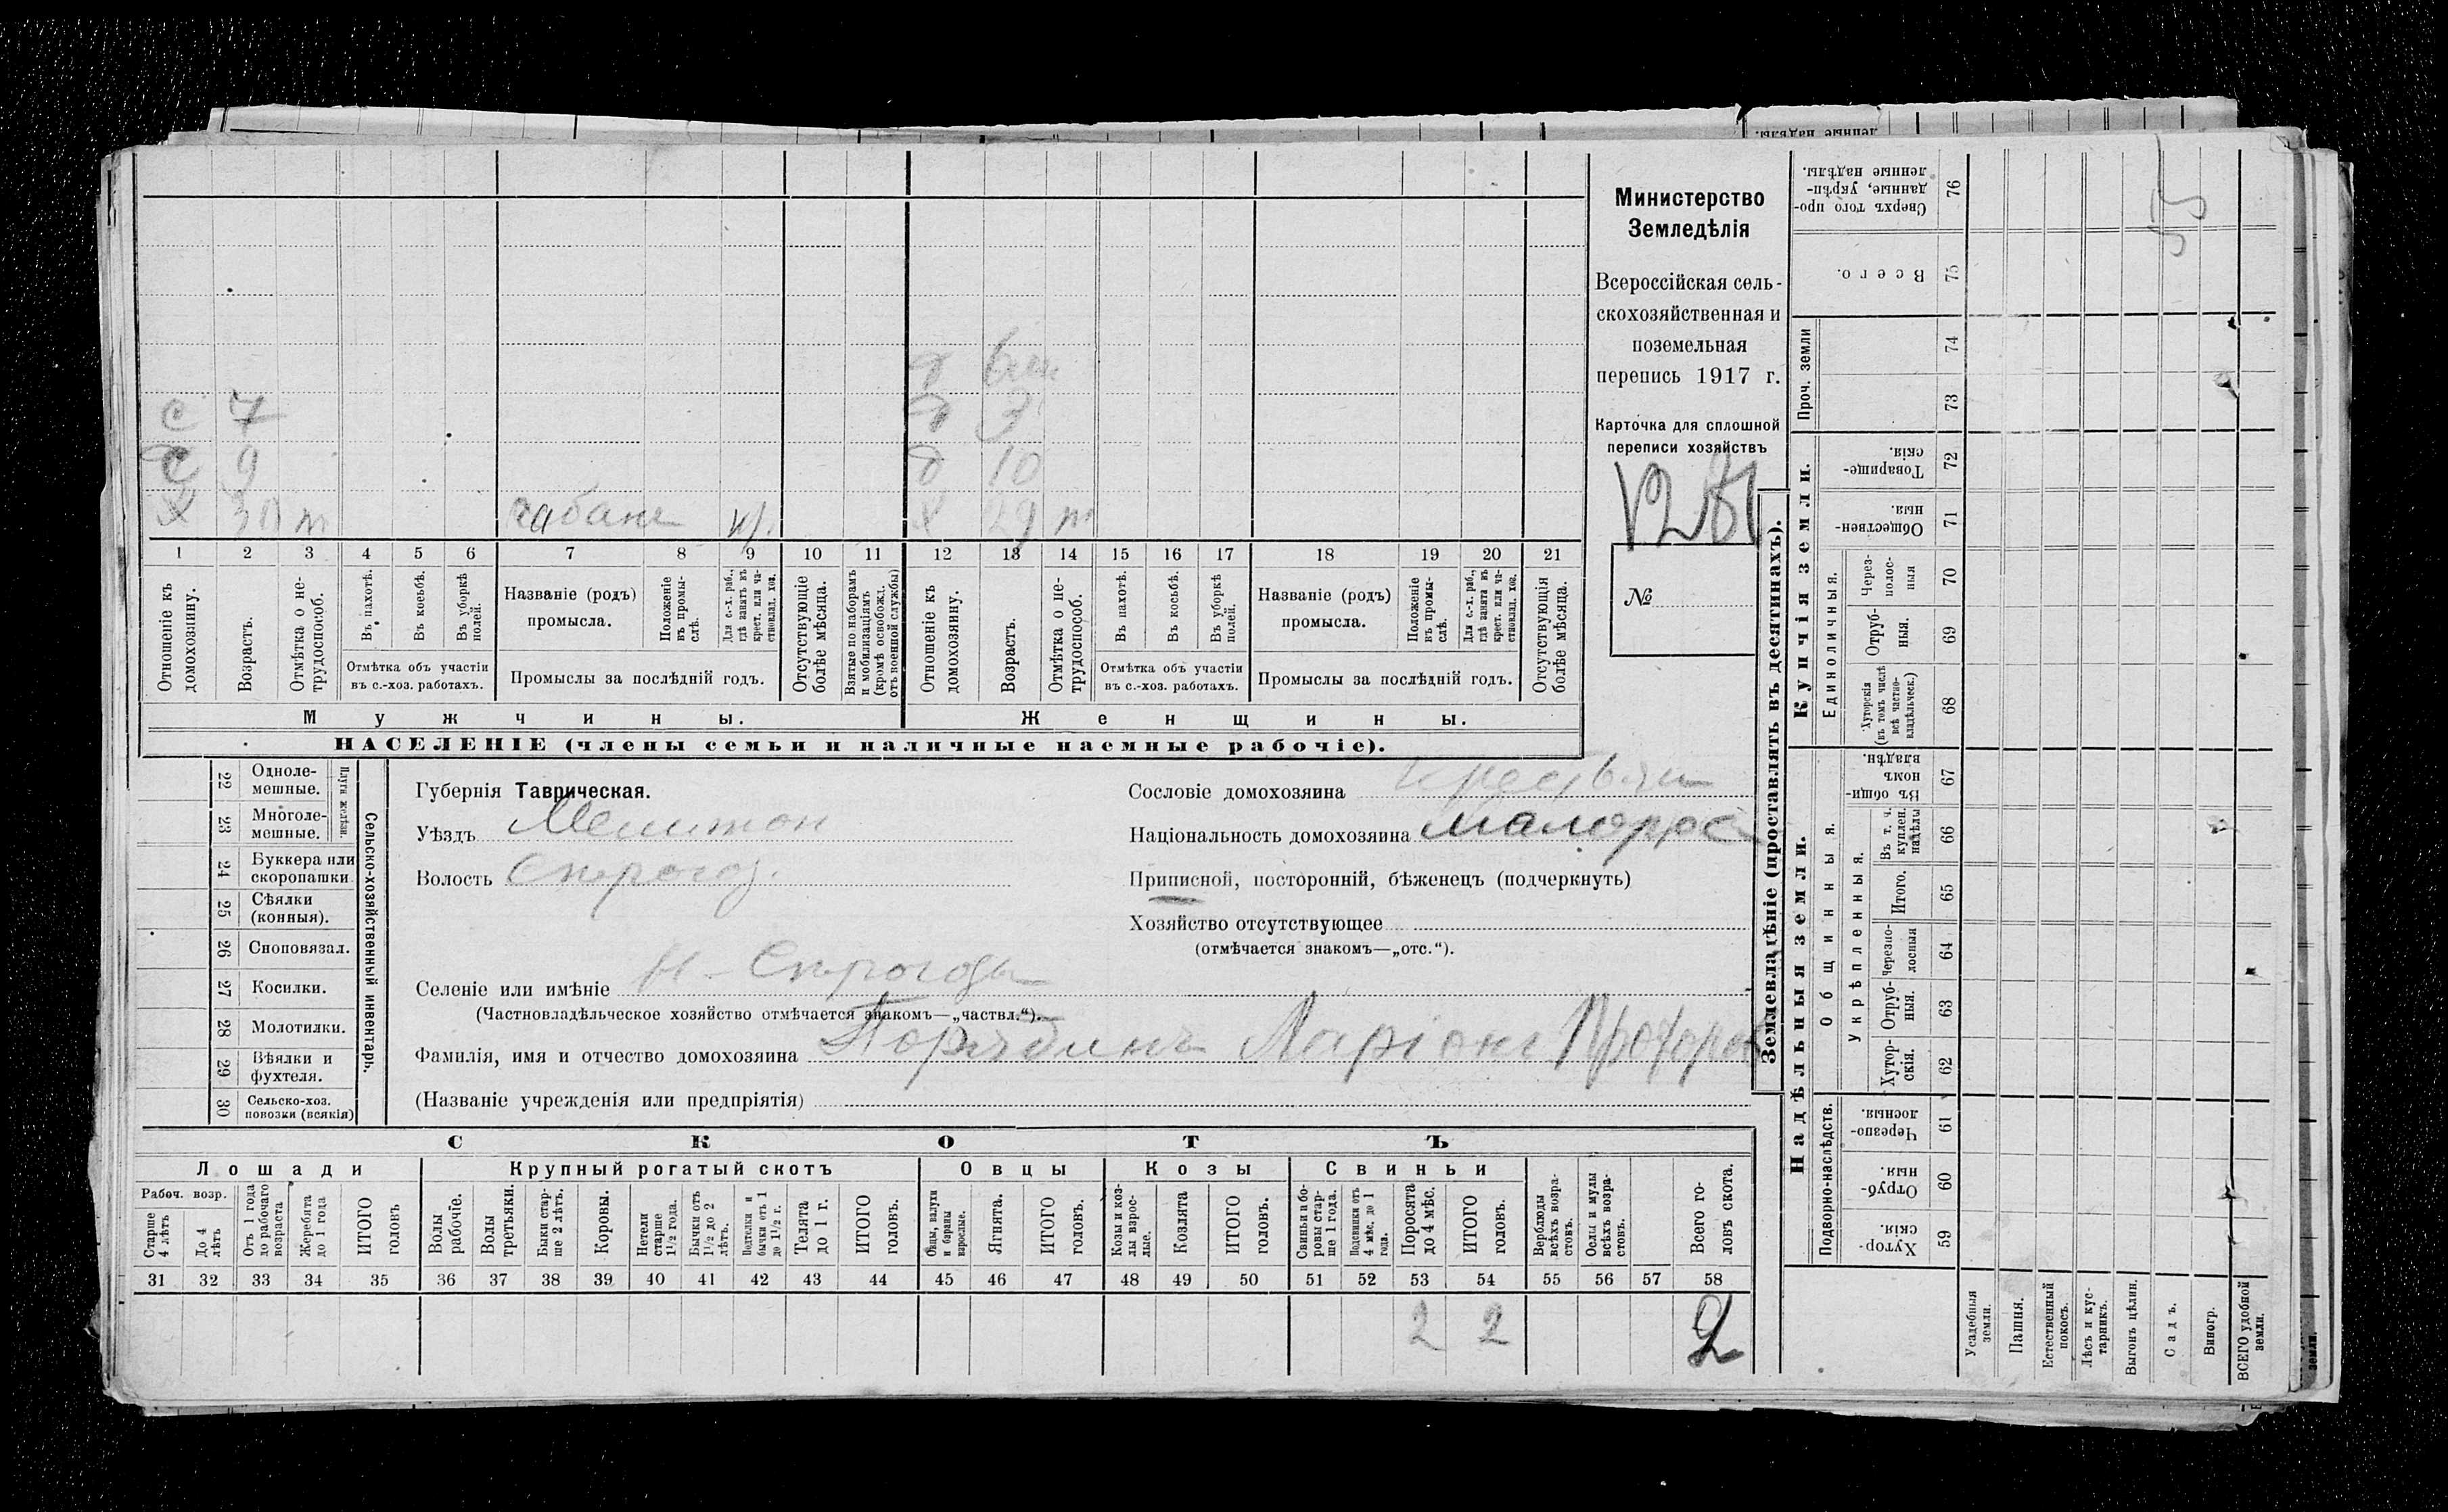 Министерство
Земледѣлія
Всероссійская сель-
скохозяйственная и
поземельная
перепись 1917 г.
Карточка для сплошной
переписи хозяйствъ
№
д 3
с 7
с 9
д 10
х
чабане
х 29
1 2 3 4 5 6 7 8 9 10 11 12 13 14 15 16 17 18 19 20 21
Отношеніе къ домохозяину.
Возрастъ.
Отмѣтка о не-трудоспособ.
Въ пахотѣ.
Въ косьбѣ.
Въ уборкѣ полей.
Отмѣтка объ участіи
въ с.-хоз. работахъ.
Названіе (родъ)
промысла.
Положеніе въ промы-слѣ.
Для с.-х. раб., гдѣ занятъ въ крест. или ча-стновлад. хоз.
Промыслы за послѣдній годъ.
Отсутствующіе болѣе мѣсяца.
Взятые по наборамъ и мобилизаціямъ (кромѣ освобожд. отъ военной службы)
Отношеніе къ домохозяину.
Возрастъ.
Отмѣтка о не-трудоспособ.
Въ пахотѣ.
Въ косьбѣ.
Въ уборкѣ полей.
Отмѣтка объ участіи
въ с.-хоз. работахъ.
Названіе (родъ)
промысла.
Положеніе въ промы-слѣ.
Для с.-х. раб., гдѣ занята въ крест. или ча-стновлад. хоз.
Промыслы за послѣдній годъ.
Отсутствующія болѣе мѣсяца.
Мужчины.
Женщины.
НАСЕЛЕНІЕ (члены семьи и наличные наемные рабочіе).
22 Одноле-мешные.
23 Многоле-мешные.
Плуги желѣзн.
24 Буккера или скоропашки
25 Сѣялки (конныя).
26 Сноповязал.
27 Косилки.
28 Молотилки.
29 Вѣялки и фухтеля.
30 Сельско-хоз. повозки (всякія)
Сельско-хозяйственный инвентарь.
Губернія Таврическая.
Уѣздъ Мелитоп
Волость Сѣрогоз.
Селеніе или имѣніе Н-Сѣрогозы
(Частновладѣльческое хозяйство отмѣчается знакомъ—„частвл.“).
Фамилія, имя и отчество домохозяина Ларіонъ Прохоров
(Названіе учрежденія или предпріятія)
Сословіе домохозяина крестьян
Національность домохозяина малорос
Приписной, посторонній, бѣженецъ (подчеркнуть)
Хозяйство отсутствующее
(отмѣчается знакомъ—„отс.“).
СКОТЪ
Лошади
Крупный рогатый скотъ
Овцы
Козы
Свиньи
Рабоч. возр.
Старше 4 лѣтъ
До 4 лѣтъ
Отъ 1 года до рабочаго возраста
Жеребята до 1 года
ИТОГО головъ
Волы рабочіе.
Волы третьяки.
Быки стар-ше 2 лѣтъ.
Коровы.
Нетели старше 1½ года.
Бычки отъ 1½ до 2 лѣтъ.
Подтелки и бычки отъ 1 до 1½ г.
Телята до 1 г.
ИТОГО головъ.
Овцы, валухи и бараны взрослые.
Ягнята.
ИТОГО головъ.
Козы и коз-лы взрос-лые.
Козлята
ИТОГО головъ.
Свиньи и бо-ровы стар-ше 1 года.
Подсвинки отъ 4 мѣс. до 1 года.
Поросята до 4 мѣс.
ИТОГО головъ.
Верблюды всѣхъ возра-стовъ.
Ослы и мулы всѣхъ возра-стовъ.
Всего го-ловъ скота.
31 32 33 34 35 36 37 38 39 40 41 42 43 44 45 46 47 48 49 50 51 52 53 54 55 56 57 58
2 2 2
Землевладѣніе (проставлять въ десятинахъ).
Надѣльныя земли.
Купчія земли.
Проч. земли
Подворно-наслѣдств.
Общинныя.
Укрѣпленныя.
Единоличныя.
Хутор-скія. 59
Отруб-ныя. 60
Черезпо-лосныя. 61
Хутор-скія. 62
Отруб-ныя. 63
Черезпо-лосныя 64
Итого. 65
Въ т. ч. куплен. надѣлы 66
Въ общин-номъ владѣн. 67
Хуторскія (въ томъ числѣ всѣ частно-владѣльческ.) 68
Отруб-ныя. 69
Через-полос-ныя 70
Обществен-ныя. 71
Товарище-скія. 72
73
74
Всего. 75
Сверхъ того про-данные, укрѣп-ленные надѣлы. 76
Усадебныя земли.
Пашня.
Естественный покосъ.
Лѣсъ и кус-тарникъ.
Выгонъ цѣлин.
Садъ.
Виногр.
ВСЕГО удобной земли.